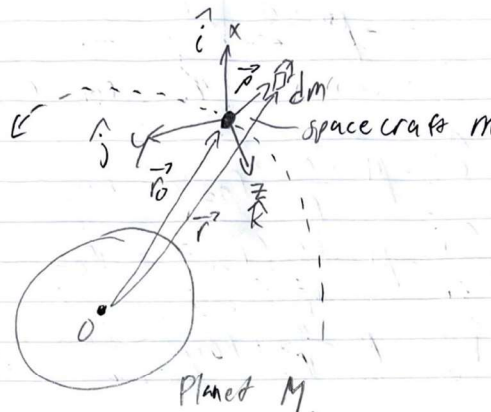 î x
ρ⃗ dm
ĵ y
spacecraft m
r⃗₀ r⃗ z
k̂
O
Planet M